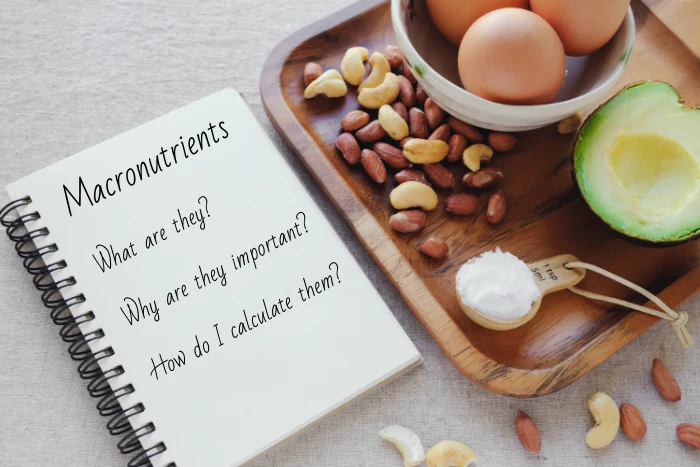 Macronutrients
What are they?
Why are they important?
How do I calculate them?
1 tsp
5ml